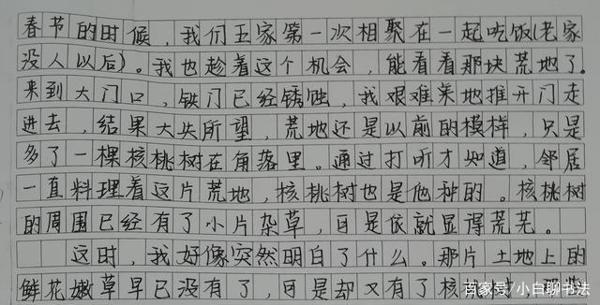 春节的时候，我们五家第一次相聚在一起吃饭(老家
没人以后)。我也趁着这个机会，能看看那块荒地了。
来到大门口，铁门已经锈蚀，我艰难地推开门走
进去，结果大失所望，荒地还是以前的模样，只是
多了一棵核桃树在角落里。通过打听才知道，邻居
一直料理着这片荒地，核桃树也是他种的。核桃树
的周围已经有了小片杂草，可是依就显得荒芜。
这时，我好像突然明白了什么。那片土地上的
鲜花嫩草早已没有了，可是却又有了核
百家号/小白聊书法